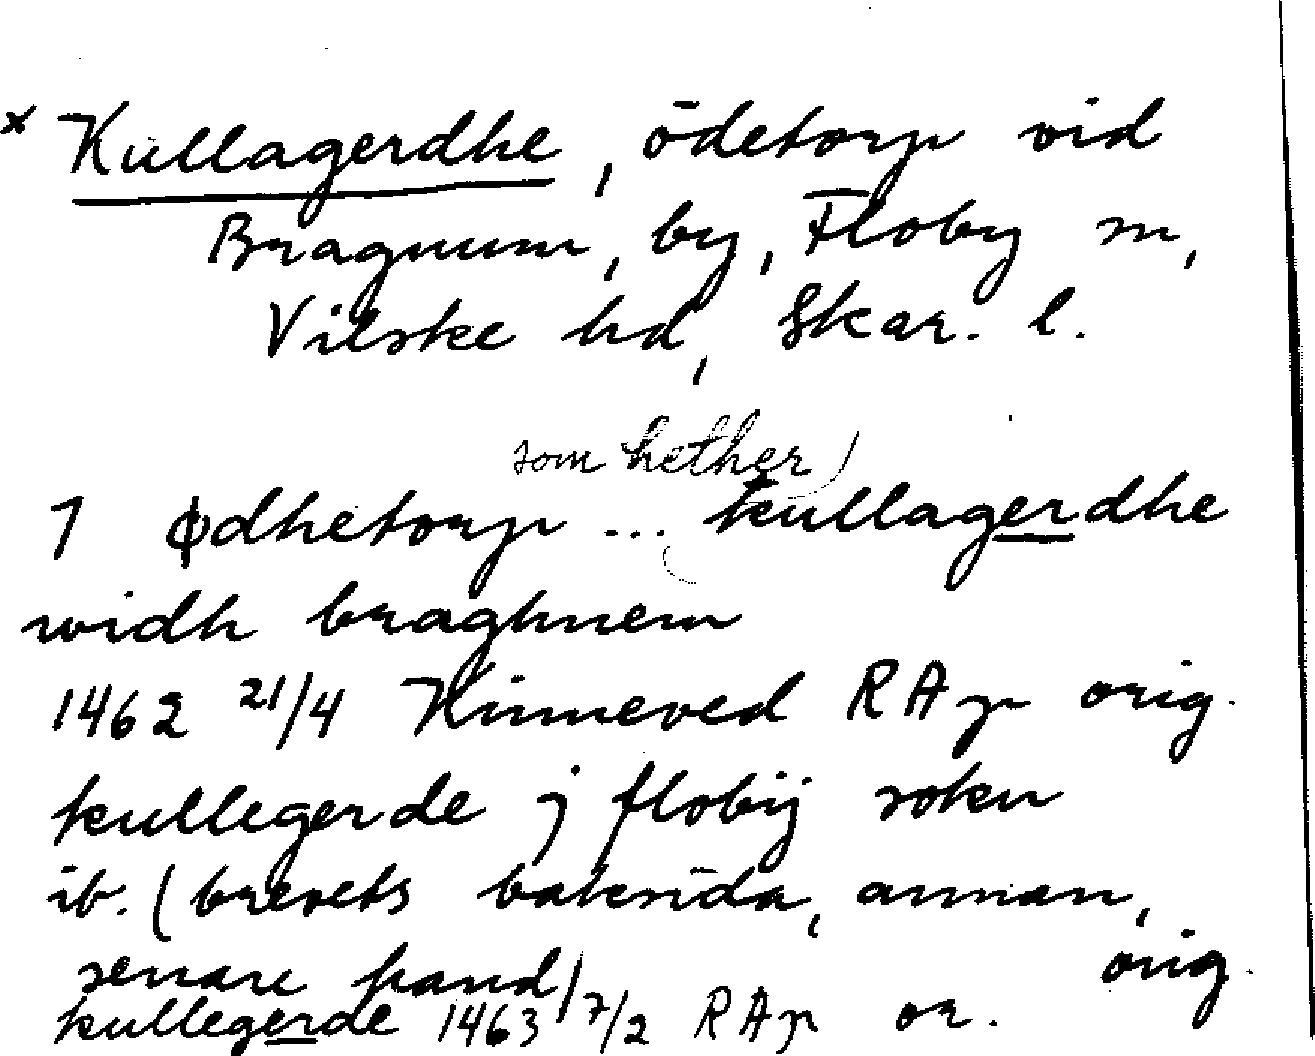 x Kullagerdhe, ödetorp vid
Bragnum, by, Floby sn,
Vilske hd, Skar. l.
som hether)
1 ødhetorp ... kullagerdhe
widh braghnem
1462 21/4 Kinneved RAp orig.
kullegerde j flobij sokn
ib. (brevets baksida, annan,
senare hand) orig.
kullegerde 1463 7/2 RAp or.